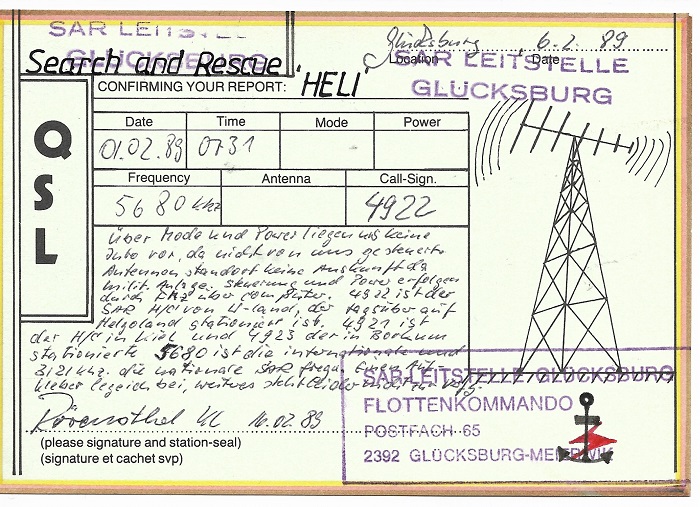 SAR LEITSTELLE
GLÜCKSBURG
Search and Rescue 'HELI'
Glücksburg 6.2.89
Location Date
SAR LEITSTELLE
GLÜCKSBURG
CONFIRMING YOUR REPORT:
QSL
Date Time Mode Power
01.02.89 0731
Frequency Antenna Call-Sign.
5680 kHz 4922
über Mode und Power liegen uns keine
Info vor, da nicht von uns gesteuert
Antennenstandort keine Auskunft da
milit. Anlage. Steuerung und Power erfolgen
durch über Computer. 4922 ist der
SAR H/C von H-land, der tagsüber auf
Helgoland stationiert ist, 4921 ist
der H/C in Kiel und 4923 der in Borkum
stationierte 5680 ist die internationale und
3121 khz. die nationale SAR frequ.
bei, weiteres steht leider nicht zur Verfg.
16.02.89
(please signature and station-seal)
(signature et cachet svp)
SAR-LEITSTELLE GLÜCKSBURG
FLOTTENKOMMANDO
POSTFACH 65
2392 GLÜCKSBURG-MEIERWIK